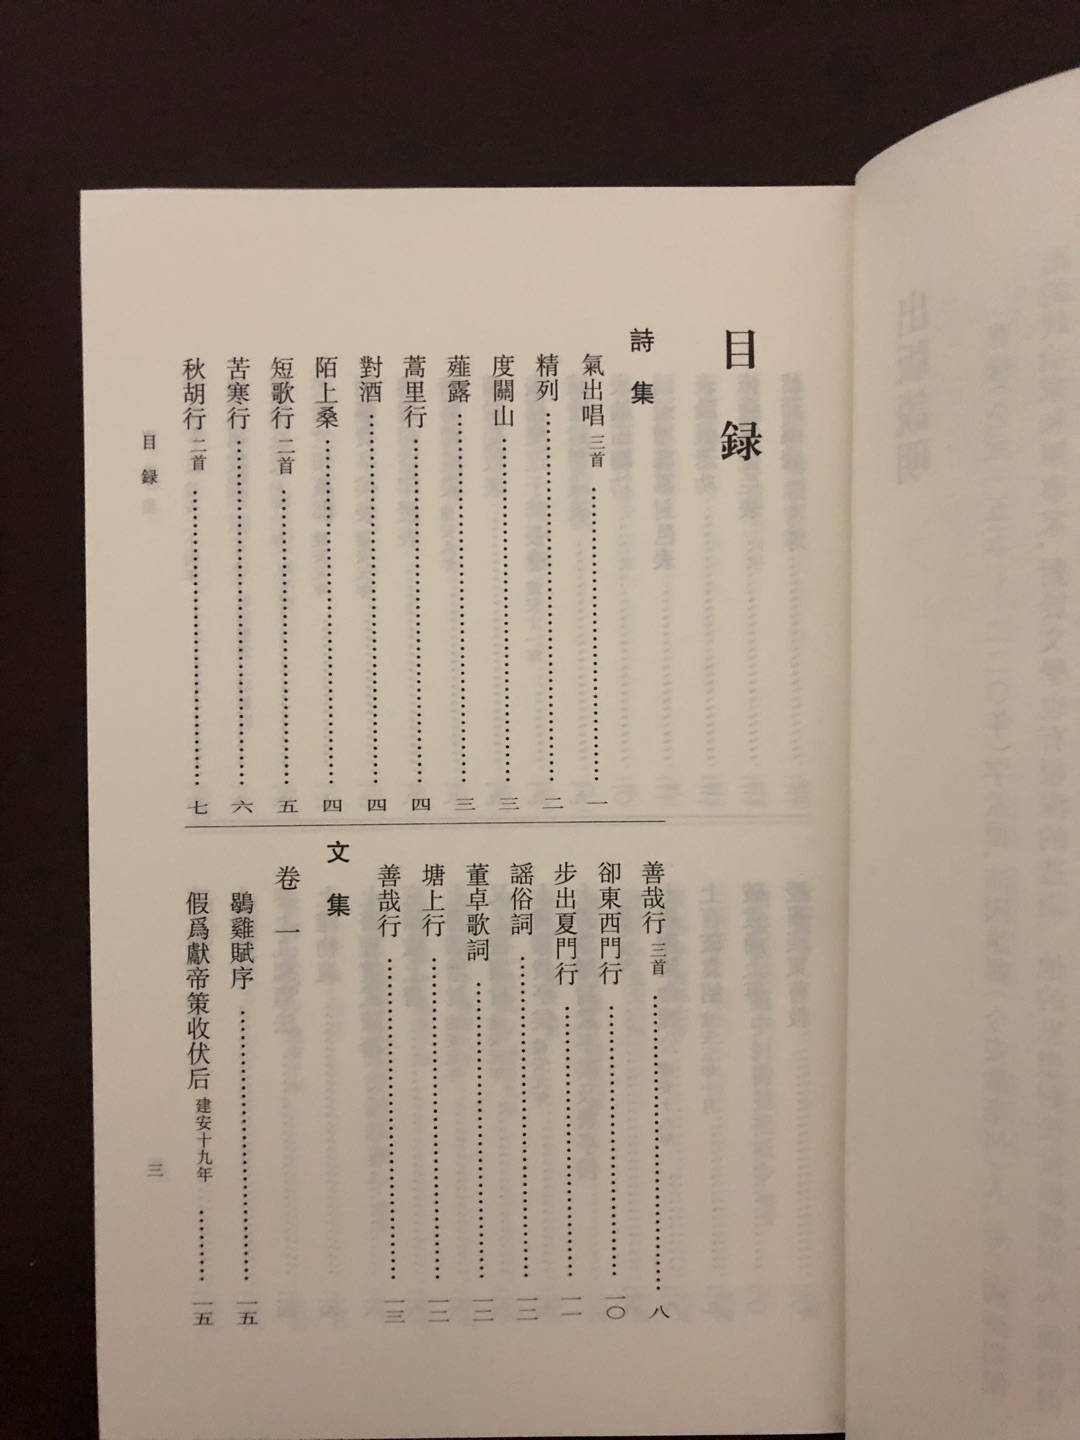 目録
詩集
氣出唱 三首……一
精列……二
度關山……三
薤露……三
蒿里行……四
對酒……四
陌上桑……四
短歌行 二首……五
苦寒行……六
秋胡行 二首……七
善哉行 三首……八
卻東西門行……一〇
步出夏門行……一一
謡俗詞……一二
董卓歌詞……一二
塘上行……一二
善哉行……一三
文集
卷一
鶡雞賦序……一五
假爲獻帝策收伏后 建安十九年……一五
目録
三